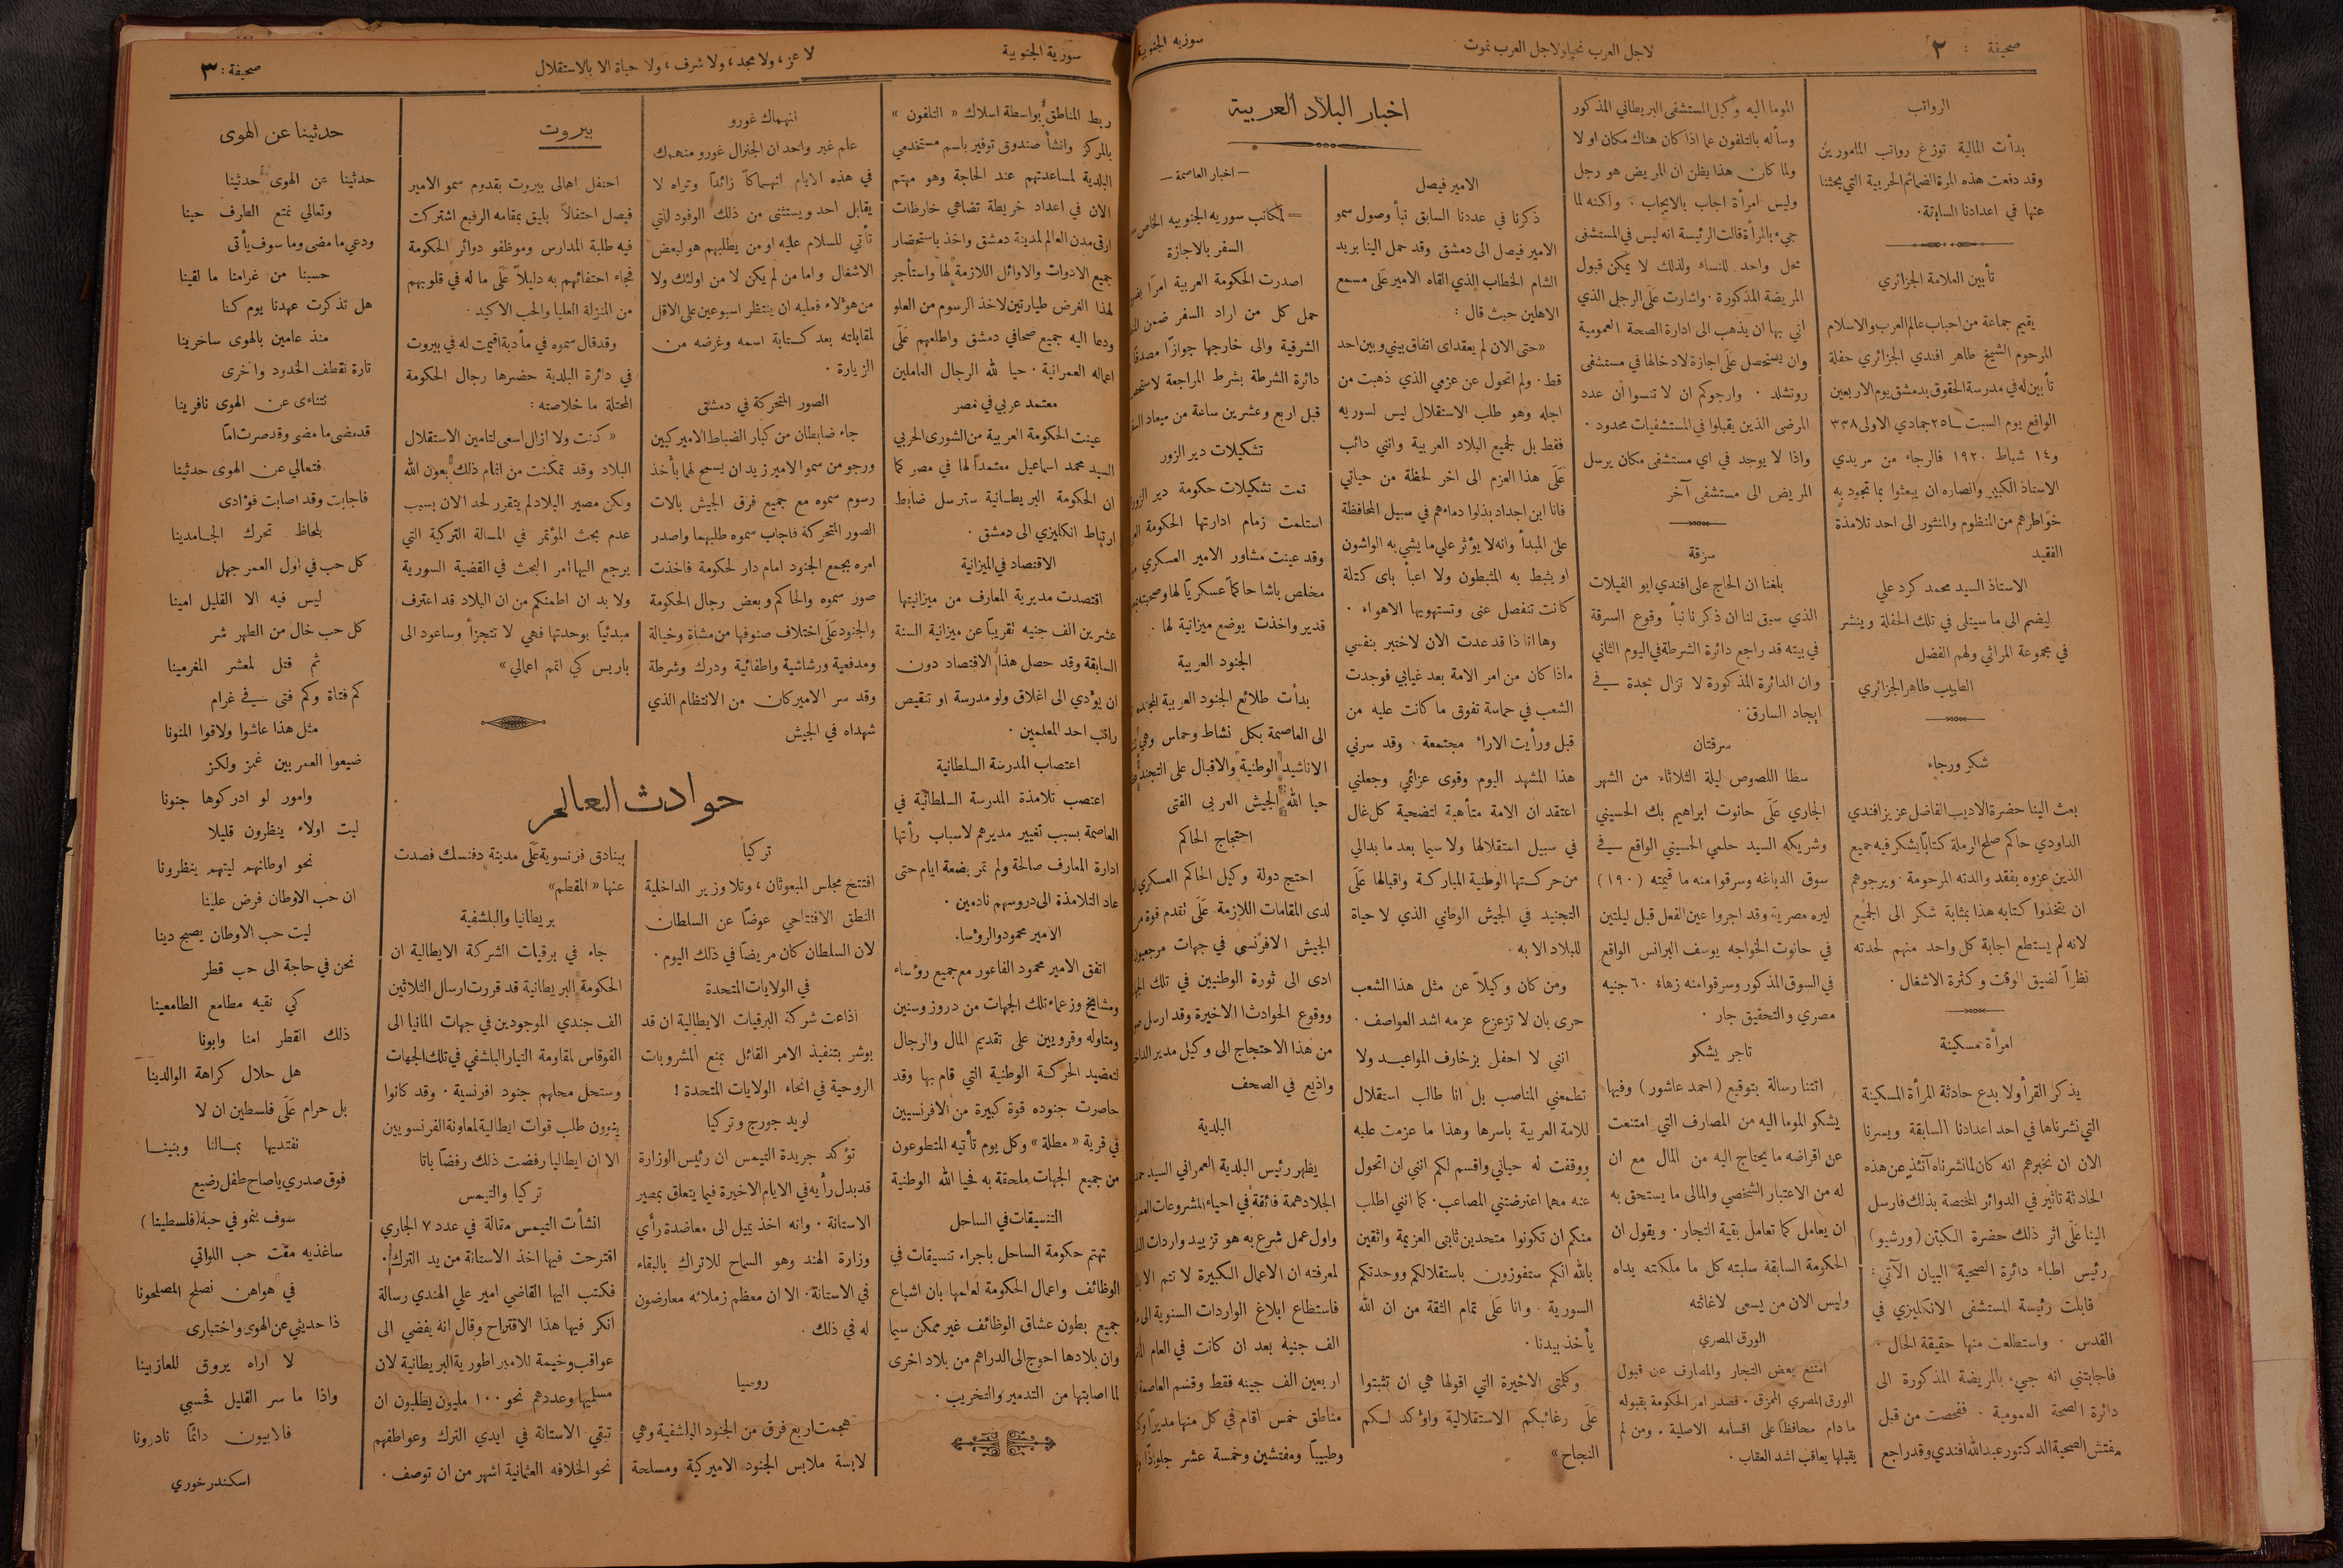 صحيفة : ٢
لاجل العرب نحيا ولاجل العرب نموت
سورية الجنوبية
الرواتب
بدأت المالية توزع رواتب المأمورين
وقد دفعت هذه المرة الضمائم الحربية التي بحثنا
عنها في اعدادنا السابقة.
تأبين العلامة الجزائري
يقيم جماعة من احباب عالم العرب والاسلام
المرحوم الشيخ طاهر افندي الجزائري حفلة
تأبين له في مدرسة الحقوق بدمشق يوم الاربعين
الواقع يوم السبت ٢٥ جمادي الاولى ٣٣٨
و١٤ شباط ١٩٢٠ فالرجاء من مريدي
الاستاذ الكبير وانصاره ان يبعثوا بما تجود به
خواطرهم من المنظوم والمنثور الى احد تلامذة
الفقيد
الاستاذ السيد محمد كرد علي
ليضم الى ما سيتلى في تلك الحفلة وينشر
في مجموعة المراثي ولهم الفضل
الطبيب طاهر الجزائري
شكر ورجاء
بعث الينا حضرة الاديب الفاضل عزيز افندي
الداودي حاكم صلح الرملة كتاباً يشكر فيه جميع
الذين عزوه بفقد والدته المرحومة . ويرجوهم
ان يتخذوا كتابه هذا بمثابة شكر الى الجميع
لانه لم يستطع اجابة كل واحد منهم لحدته
نظراً لضيق الوقت وكثرة الاشغال .
امرأة مسكينة
يذكر القرأ ولا بدع حادثة المرأة المسكينة
التي نشرناها في احد اعدادنا السابقة ويسرنا
الان ان نخبرهم انه كان لما نشرناه آنئذ عن هذه
الحادثة تاثير في الدوائر المختصة بذاك فارسل
الينا عَلَى اثر ذلك حضرة الكبتن (ورشيو)
رئيس اطباء دائرة الصحية البيان الآتي :
قابلت رئيسة المستشفى الانكليزي في
القدس . واستطلعت منها حقيقة الحال .
فاجابتني انه جيء بالمريضة المذكورة الى
دائرة الصحة العمومية . ففحصت من قبل
مفتش الصحية الدكتور عبدالله افندي وقد راجع
الموما اليه وكيل المستشفى البريطاني المذكور
وسأله بالتلفون عما اذا كان هناك مكان او لا
ولما كان هذا يظن ان المريض هو رجل
وليس امرأة اجاب بالايجاب . ولكنه لما
جيء بالمرأة قالت الرئيسة انه ليس في المستشفى
محل واحد للنساء ولذلك لا يمكن قبول
المريضة المذكورة . واشارت عَلَى الرجل الذي
اتي بها ان يذهب الى ادارة الصحة العمومية
وان يستحصل عَلَى اجازة لادخالها في مستشفى
روتشلد . وارجوكم ان لا تنسوا ان عدد
المرضى الذين يقبلوا في المستشفيات محدود .
واذا لا يوجد في اي مستشفى مكان يرسل
المريض الى مستشفى آخر
سرقة
بلغنا ان الحاج علي افندي ابو الفيلات
الذي سبق لنا ان ذكرنا نبأ وقوع السرقة
في بيته قد راجع دائرة الشرطة في اليوم الثاني
وان الدائرة المذكورة لا تزال مجدة في
ايجاد السارق .
سرقتان
سطا اللصوص ليلة الثلاثاء من الشهر
الجاري عَلَى حانوت ابراهيم بك الحسيني
وشريكه السيد حلمي الحسيني الواقع في
سوق الدباغه وسرقوا منه ما قيمته (١٩٠)
ليره مصرية وقد اجروا عين الفعل قبل ليلتين
في حانوت الخواجه يوسف البرانس الواقع
في السوق المذكور وسرقوا منه زهاء ٦٠ جنيه
مصري والتحقيق جار .
تاجر يشكو
اتتنا رسالة بتوقيع (احمد عاشور) وفيها
يشكو الموما اليه من المصارف التي امتنعت
عن اقراضه ما يحتاج اليه من المال مع ان
له من الاعتبار الشخصي والمالي ما يستحق به
ان يعامل كما تعامل بقية التجار . ويقول ان
الحكومة السابقة سلبته كل ما ملكته يداه
وليس الان من يسعى لاغاثته
الورق المصري
امتنع بعض التجار والمصارف عن قبول
الورق المصري الممزق . فصدر امر الحكومة بقبوله
ما دام محافظاً على اقسامه الاصلية . ومن لم
يقبلها يعاقب اشد العقاب .
اخبار البلاد العربية
الامير فيصل
ذكرنا في عددنا السابق نبأ وصول سمو
الامير فيصل الى دمشق وقد حمل الينا بريد
الشام الخطاب الذي القاه الامير عَلَى مسمع
الاهلين حيث قال :
«حتى الان لم يعقد اي اتفاق بيني وبين احد
قط . ولم اتحول عن عزمي الذي ذهبت من
اجله وهو طلب الاستقلال ليس لسوريه
فقط بل لجميع البلاد العربية وانني دائب
عَلَى هذا العزم الى اخر لحظة من حياتي
فانا ابن اجداد بذلوا دماءهم في سبيل المحافظة
على المبدأ وانه لا يؤثر علي ما يشي به الواشون
او يثبط به المثبطون ولا اعبأ باى كتلة
كانت تنفصل عنى وتستهويها الاهواء .
وها انا ذا قد عدت الان لاختبر بنفسي
ماذا كان من امر الامة بعد غيابي فوجدت
الشعب في حماسة تفوق ما كانت عليه من
قبل ورأيت الاراء مجتمعة . وقد سرني
هذا المشهد اليوم وقوى عزائمي وجعلني
اعتقد ان الامة متأهبة لتضحية كل غال
في سبيل استقلالها ولا سيما بعد ما بدالي
من حركتها الوطنية المباركة واقبالها عَلَى
التجنيد في الجيش الوطني الذي لا حياة
للبلاد الا به .
ومن كان وكيلاً عن مثل هذا الشعب
حرى بان لا تزعزع عزمه اشد العواصف .
انني لا احفل بزخارف المواعيد ولا
تطمعني المناصب بل انا طالب استقلال
للامة العربية باسرها وهذا ما عزمت عليه
ووقفت له حياتي واقسم لكم انني لن اتحول
عنه مهما اعترضتني المصاعب . كما انني اطلب
منكم ان تكونوا متحدين ثابتي العزيمة واثقين
بالله انكم ستفوزون باستقلالكم ووحدتكم
السورية . وانا عَلَى تمام الثقة من ان الله
يأخذ بيدنا .
وكلمتي الاخيرة التي اقولها هي ان تثبتوا
عَلَى رغائبكم الاستقلالية واؤكد لكم
النجاح»
— اخبار العاصمة —
لمكاتب سوريه الجنوبيه الخاص
السفر بالاجازة
اصدرت الحكومة العربية امراً
حمل كل من اراد السفر ضمن
الشرقية والى خارجها جوازاً مصدقاً
دائرة الشرطة بشرط المراجعة
قبل اربع وعشرين ساعة من ميعاد
تشكيلات دير الزور
تمت تشكيلات حكومة دير الزور
استلمت زمام ادارتها الحكومة
وقد عينت مشاور الامير العسكري
مخلص باشا حاكماً عسكرياً لها وصحبته
قدير واخذت بوضع ميزانية لها .
الجنود العربية
بدأت طلائع الجنود العربية
الى العاصمة بكل نشاط وحماس وهي
الاناشيد الوطنية والاقبال على التجند
حيا الله الجيش العربي الفتى
احتجاج الحاكم
احتج دولة وكيل الحاكم العسكري
لدى المقامات اللازمة عَلَى تقدم قوة من
الجيش الافرنسي في جهات مرجعيون
ادى الى ثورة الوطنيين في تلك
ووقوع الحوادث الاخيرة وقد ارسل
من هذا الاحتجاج الى وكيل مدير
واذيع في الصحف
البلدية
يظهر رئيس البلدية العمراني السيد
الجلاد همة فائقة في احياء المشروعات
واول عمل شرع به هو تزييد واردات
لمعرفته ان الاعمال الكبيرة لا تتم الا
فاستطاع ابلاغ الواردات السنوية الى
الف جنيه بعد ان كانت في العام
اربعين الف جينه فقط وقسم العاصمة
مناطق خمس اقام في كل منها مديراً
وطبيباً ومفتشين وخمسة عشر
سورية الجنوبية
لا عز، ولا مجد، ولا شرف، ولا حياة الا بالاستقلال
صحيفة : ٣
ربط المناطق بواسطة اسلاك « التلفون »
بالمركز وانشأ صندوق توفير باسم مستخدمي
البلدية لمساعدتهم عند الحاجة وهو مهتم
الان في اعداد خريطة تضاهي خارطات
ارقى مدن العالم لمدينة دمشق واخذ باستحضار
جميع الادوات والاوائل اللازمة لها واستأجر
لهذا الغرض طيارتين لاخذ الرسوم من العلو
ودعا اليه جميع صحافي دمشق واطلعهم عَلَى
اعماله العمرانية . حيا لله الرجال العاملين
معتمد عربي في مصر
عينت الحكومة العربية من الشورى الحربي
السيد محمد اسماعيل معتمداً لها في مصر كما
ان الحكومة البريطانية سترسل ضابط
ارتباط انكليزي الى دمشق .
الاقتصاد في الميزانية
اقتصدت مديرية المعارف من ميزانيتها
عشرين الف جنيه تقريباً عن ميزانية السنة
السابقة وقد حصل هذا الاقتصاد دون
ان يؤدي الى اغلاق ولو مدرسة او تنقيص
راتب احد المعلمين .
اعتصاب المدرسة السلطانية
اعتصب تلامذة المدرسة السلطانية في
العاصمة بسبب تغيير مديرهم لاسباب رأتها
ادارة المعارف صالحة ولم تمر بضعة ايام حتى
عاد التلامذة الى دروسهم نادمين .
الامير محمود والرؤساء
اتفق الامير محمود الفاعور مع جميع رؤساء
ومشايخ وزعماء تلك الجهات من دروز وسنيين
ومتاوله وقرويين على تقديم المال والرجال
لتعضيد الحركة الوطنية التي قام بها وقد
حاصرت جنوده قوة كبيرة من الافرنسيين
في قرية « مطلة » وكل يوم تأتيه المتطوعون
من جميع الجهات ملحقة به فحيا الله الوطنية
التنسيقات في الساحل
تهتم حكومة الساحل باجراء تنسيقات في
الوظائف واعمال الحكومة لعلمها بان اشباع
جميع بطون عشاق الوظائف غير ممكن سيما
وان بلادها احوج الى الدراهم من بلاد اخرى
لما اصابتها من التدمير والتخريب .
انهماك غورو
علم غير واحد ان الجنرال غورو منهمك
في هذه الايام انهماكاً زائداً وتراه لا
يقابل احد ويستثنى من ذلك الوفود التي
تأتي للسلام عليه او من يطلبهم هو لبعض
الاشغال واما من لم يكن لا من اولئك ولا
من هؤلاء فعليه ان ينتظر اسبوعين على الاقل
لمقابلته بعد كتابة اسمه وغرضه من
الزيارة .
الصور المتحركة في دمشق
جاء ضابطان من كبار الضباط الاميركيين
ورجو من سمو الامير زيد ان يسمح لهما بأخذ
رسوم سموه مع جميع فرق الجيش بالات
الصور المتحركة فاجاب سموه طلبهما واصدر
امره بجمع الجنود امام دار لحكومة فاخذت
صور سموه والحاكم وبعض رجال الحكومة
والجنود عَلَى اختلاف صنوفها من مشاة وخيالة
ومدفعية ورشاشية واطفائية ودرك وشرطة
وقد سر الاميركان من الانتظام الذي
شهداه في الجيش
بيروت
احتفل اهالى بيروت بقدوم سمو الامير
فيصل احتفالاً يليق بمقامه الرفيع اشتركت
فيه طلبة المدارس وموظفو دوائر الحكومة
فجاء احتفائهم به دليلاً عَلَى ما له في قلوبهم
من المنزلة العليا والحب الاكيد .
وقد قال سموه في مأدبة اقيمت له في بيروت
في دائرة البلدية حضرها رجال الحكومة
المحتلة ما خلاصته :
« كنت ولا ازال اسعى لتامين الاستقلال
البلاد وقد تمكنت من اتمام ذلك بعون الله
ولكن مصير البلاد لم يتقرر لحد الان بسبب
عدم بحث المؤتمر في المسالة التركية التي
يرجع اليها امر البحث في القضية السورية
ولا بد ان اطمنكم من ان البلاد قد اعترف
مبدئياً بوحدتها فهي لا تتجزأ وساعود الى
باريس كي اتمم اعمالي»
حوادث العالم
تركيا
افتتح مجلس المبعوثان ، وتلا وزير الداخلية
النطق الافتتاحي عوضاً عن السلطان
لان السلطان كان مريضاً في ذلك اليوم .
في الولايات المتحدة
اذاعت شركة البرقيات الايطالية ان قد
بوشر بتنفيذ الامر القائل بمنع المشروبات
الروحية في انحاء الولايات المتحدة !
لويد جورج وتركيا
تؤكد جريدة التيمس ان رئيس الوزارة
قد بدل رأيه في الايام الاخيرة فيما يتعلق بمصير
الاستانة . وانه اخذ يميل الى معاضدة رأي
وزارة الهند وهو السماح للاتراك بالبقاء
في الاستانة . الا ان معظم زملائه معارضون
له في ذلك .
روسيا
هجمت اربع فرق من الجنود البلشفية وهي
لابسة ملابس الجنود الاميركية ومسلحة
ببنادق فرنسوية عَلَى مدينة دفنسك فصدت
عنها «المقطم»
بريطانيا والبلشفية
جاء في برقيات الشركة الايطالية ان
الحكومة البريطانية قد قررت ارسال الثلاثين
الف جندي الموجودين في جهات المانيا الى
القوقاس لمقاومة التيار البلشفي في تلك الجهات
وستحل محلهم جنود افرنسية . وقد كانوا
ينوون طلب قوات ايطالية لمعاونة الفرنسويين
الا ان ايطاليا رفضت ذلك رفضاً باتا
تركيا والتيمس
انشأت التيمس مقالة في عدد ٧ الجاري
اقترحت فيها اخذ الاستانة من يد الترك .
فكتب اليها القاضي امير علي الهندي رسالة
انكر فيها هذا الاقتراح وقال انه يفضي الى
عواقب وخيمة للامبراطورية البريطانية لان
مسلميها وعددهم نحو ١٠٠ مليون يطلبون ان
تبقي الاستانة في ايدي الترك وعواطفهم
نحو الخلافه العثمانية اشهر من ان توصف .
حدثينا عن الهوى
حدثينا عن الهوى حدثينا
وتعالي نمتع الطرف حينا
ودعي ما مضى وما سوف يأتى
حسبنا من غرامنا ما لقينا
هل تذكرت عهدنا يوم كنا
منذ عامين بالهوى ساخرينا
تارة نقطف الخدود واخرى
نتناءى عن الهوى نافرينا
قد مضى ما مضى وقد صرت اماً
فتعالي عن الهوى حدثينا
فاجابت وقد اصابت فؤادى
بلحاظ تحرك الجامدينا
كل حب في اول العمر جهل
ليس فيه الا القليل امينا
كل حب خال من الطهر شر
ثم قتل لمعشر المغرمينا
كم فتاة وكم فتى في غرام
مثل هذا عاشوا ولاقوا المنونا
ضيعوا العمر بين غمز ولكز
وامور لو ادركوها جنونا
ليت اولاء ينظرون قليلا
نحو اوطانهم ليتهم ينظرونا
ان حب الاوطان فرض علينا
ليت حب الاوطان يصبح دينا
نحن في حاجة الى حب قطر
كي نقيه مطامع الطامعينا
ذلك القطر امنا وابونا
هل حلال كراهة الوالدينا
بل حرام عَلَى فلسطين ان لا
نفتديها بمالنا وبنينا
فوق صدري ياصاح طفل رضيع
سوف ينمو في حبه (فلسطينا)
ساغذيه مقت حب اللواتي
في هواهن نصلح المصلحونا
ذا حديثي عن الهوى واختبارى
لا اراه يروق للعازبينا
واذا ما سر القليل فحسبي
فالابيون دائماً نادرونا
اسكندر خوري